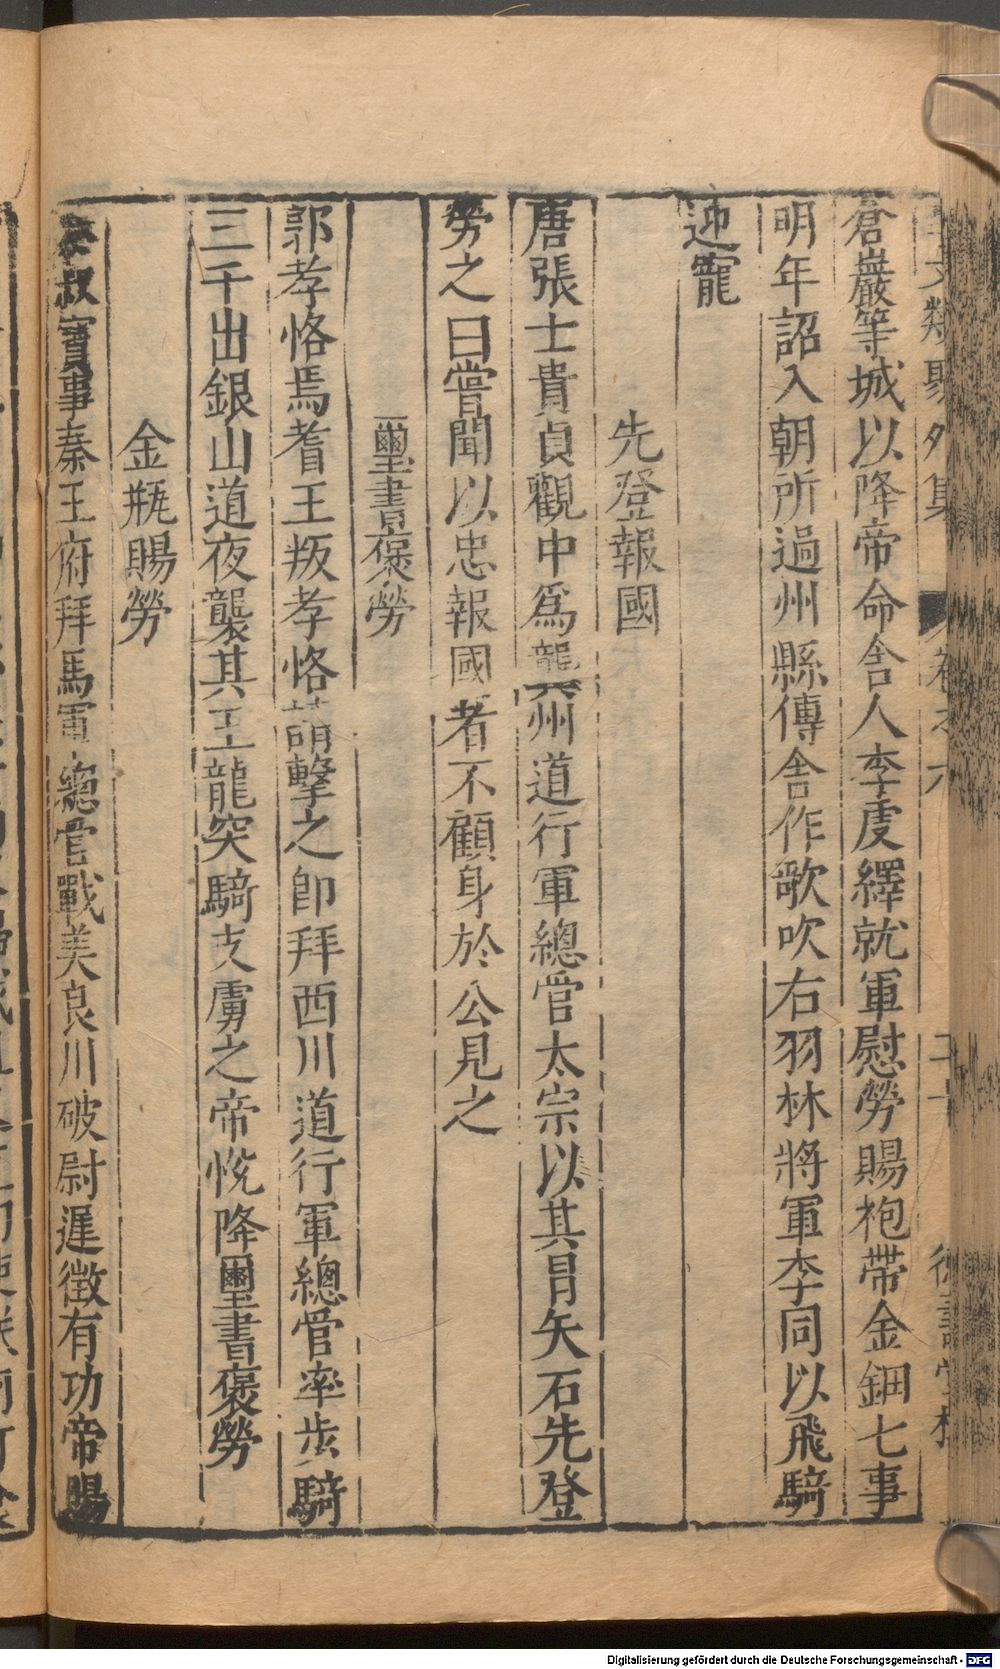 倉巖等城以降帝命舍人李虔繹就軍慰勞賜袍帶金鈿七事
明年詔入朝所過州縣傳舍作歌吹右羽林將軍李同以飛騎
迎寵
先登報國
唐張士貴貞觀中爲龔州道行軍總管太宗以其冒矢石先登
勞之曰嘗聞以忠報國者不顧身於公見之
璽書褒勞
郭孝恪焉耆王叛孝恪請擊之卽拜西川道行軍總管率步騎
三千出銀山道夜襲其王龍突騎支虜之帝悅降璽書褒勞
金瓶賜勞
叔寶事秦王府拜馬軍總管戰美良川破尉遲徵有功帝賜
Digitalisierung gefördert durch die Deutsche Forschungsgemeinschaft - DFG